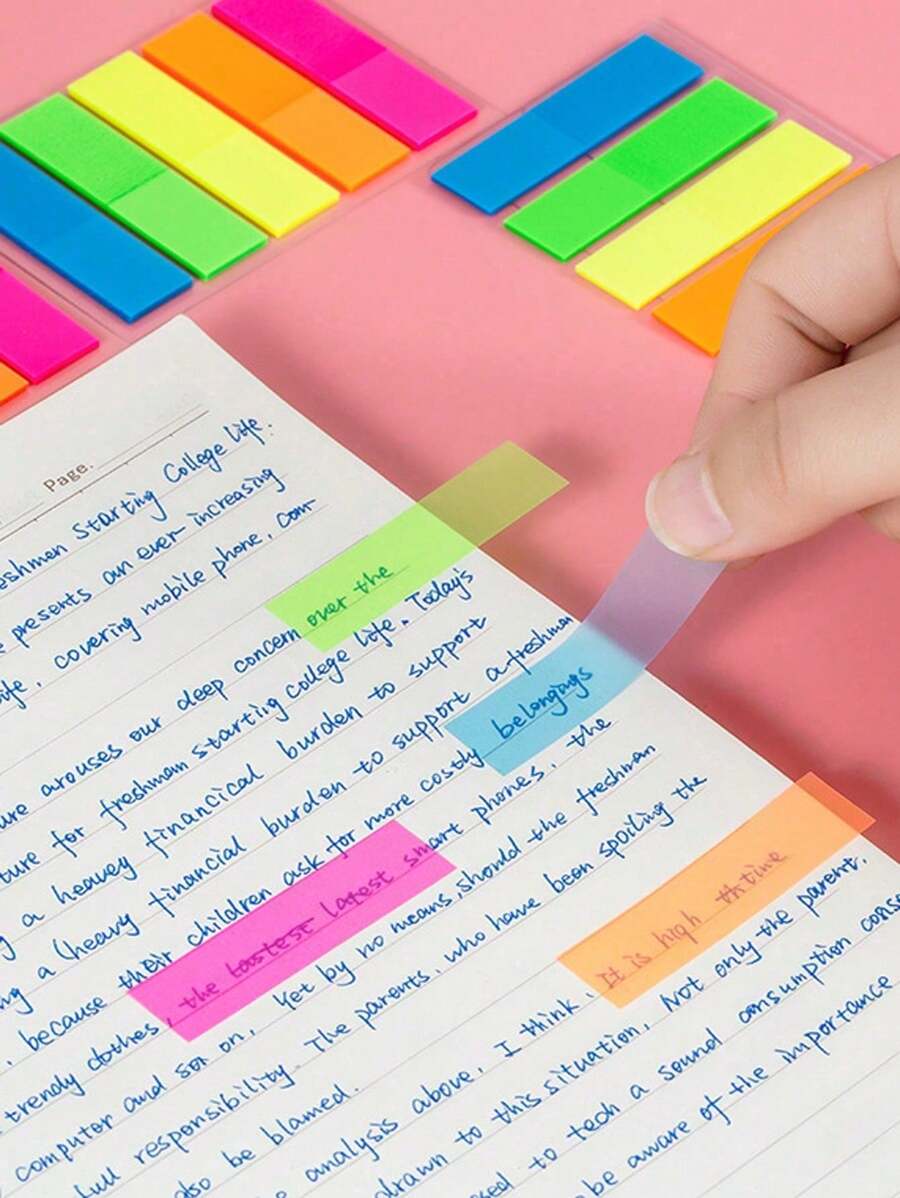 Page.
eshmen Starting College Life.
e presents an ever-increasing
life, covering mobile phone, com-
ure arouses our deep concern over the
ture for freshman starting college life. Today's
g a heavey financical burden to support
ng a (heavy financial burden to support a freshman
, because their children ask for more costly belongings
trendy clothes, the lastest latest smart phones, the
computer and so on. Yet by no means, should the freshman
full responsibility. The parents, who have been spoiling the
also be blamed.
e analysis above, I think, It is high thtime
drawn to this situation. Not only the parent,
sed to tech a sound consumption conse
be aware of the importance